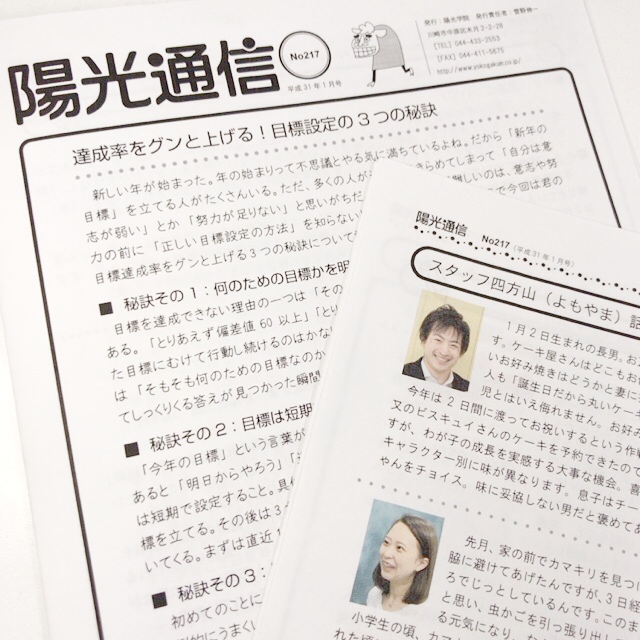 陽光通信
No217
平成31年1月号
発行：陽光学院 発行責任者：菅野伸一
川崎市中原区木月2-2-28
【TEL】044-433-2553
【FAX】044-411-5675
http://www.yokogakuin.co.jp/
達成率をグンと上げる！目標設定の３つの秘訣
新しい年が始まった。年の始まりって不思議とやる気に満ちているよね。だから「新年の
目標」を立てる人がたくさんいる。ただ、多くの人が
きらめてしまって「自分は意
志が弱い」とか「努力が足りない」と思いがちだ
難しいのは、意志や努
力の前に「正しい目標設定の方法」を知らない
で今回は君の
目標達成率をグンと上げる３つの秘訣について
■ 秘訣その１：何のための目標かを明
目標を達成できない理由の一つは「その
ある。「とりあえず偏差値60以上」「と
た目標にむけて行動し続けるのはかな
は「そもそも何のための目標なのか
てしっくりくる答えが見つかった瞬間
■ 秘訣その２：目標は短期
「今年の目標」という言葉が
あると「明日からやろう」「
は短期で設定すること。具
標を立てる。その後は3
いてくる。まずは直近1
■ 秘訣その３：
初めてのことに
陽光通信 No217（平成31年1月号）
スタッフ四方山（よもやま）
１月２日生まれの長男。お
す。ケーキ屋さんはどこもお
いお好み焼きはどうかと妻に
人も「誕生日だから丸いケー
児とはいえ侮れません。お好み
今年は２日間に渡ってお祝いするという作戦
又のビスキュイさんのケーキを予約できたので
すが、わが子の成長を実感する大事な機会。喜
キャラクター別に味が異なります。息子はチー
ゃんをチョイス。味に妥協しない男だと褒めてあ
先月、家の前でカマキリを見つ
脇に避けてあげたんですが、３日経
ろでじっとしているんです。このま
と思い、虫かごを引っ張り出し
る元気になり、
小学生の頃、カマ